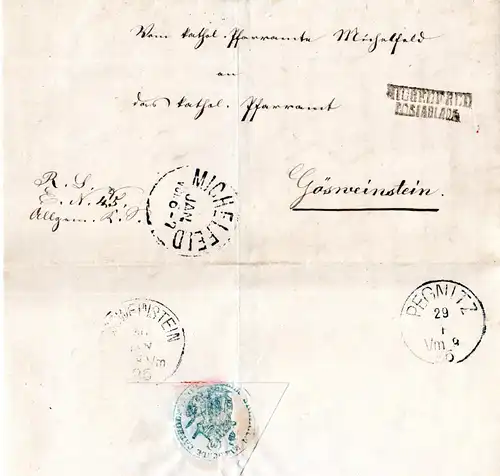 Vom kathol. Pfarramte Michelfeld
an
das kathol. Pfarramt
MICHELFELD
POSTABLAGE
Gösweinstein.
R. S.
E. N. 45.
Allgem. R. S.
MICHELFELD
JAN
6-7
PEGNITZ
29
1
Vm 9
96
WEINSTEIN
Vm
96